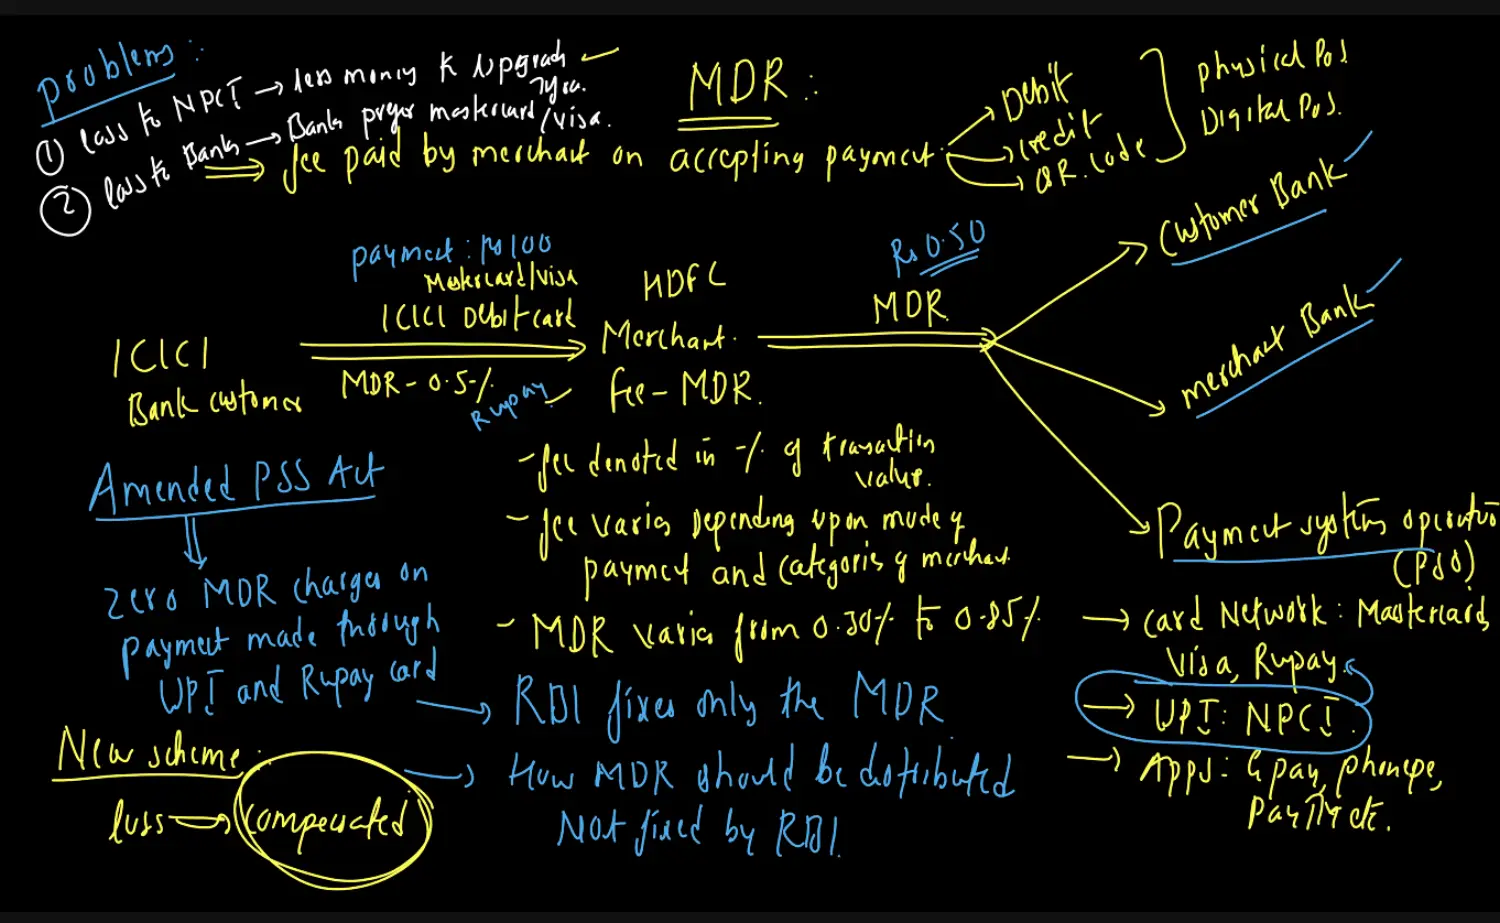 problems :
① loss to NPCI → less money to upgrade
② loss to Bank → Bank prefer mastercard/visa.
MDR :
⇒ fee paid by merchant on accepting payment.
→ Debit
→ credit
→ QR. Code
physical PoS
Digital PoS.
payment : Rs 100
Mastercard/visa
ICICI Debit card
MDR - 0.5%
Rupay
ICICI
Bank customer
HDFC
Merchant.
fee - MDR.
Rs 0.50
MDR
Customer Bank
merchant Bank
Payment system operator
(PSO)
→ Card Network : Mastercard,
Visa, Rupay.
→ UPI : NPCI.
→ Apps : Gpay, phonepe,
PayTM etc.
- fee denoted in % of transaction
value.
- fee varies depending upon mode of
payment and categories of merchant.
- MDR varies from 0.30% to 0.85%
Amended PSS Act
zero MDR charges on
payment made through
UPI and Rupay card
→ RBI fixes only the MDR
→ How MDR should be distributed
Not fixed by RBI.
New scheme :
loss → compensated